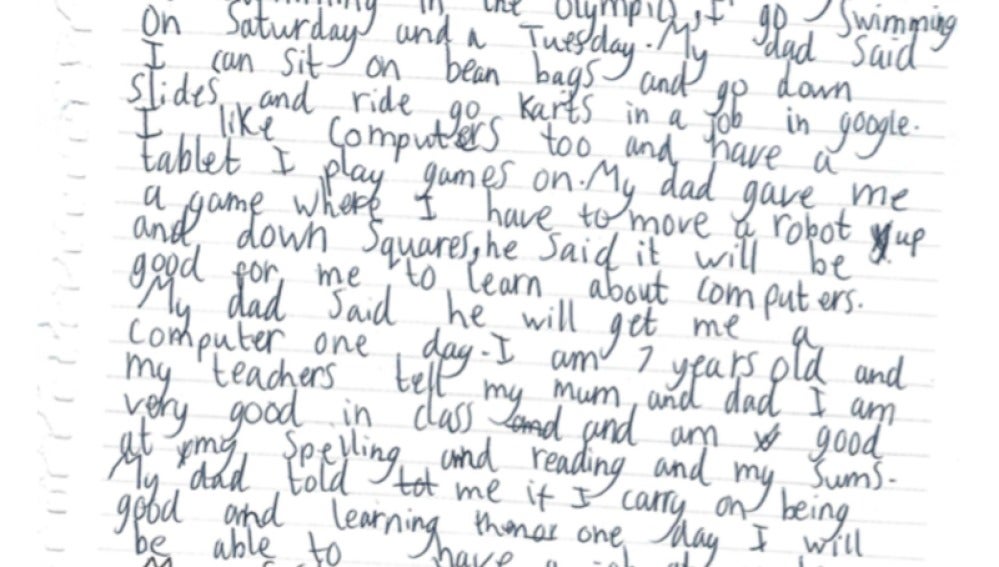 in the Olympic, I go Swimming
On Saturday and a Tuesday. My dad Said
I can Sit on bean bags and go down
Slides and ride go Karts in a job in google.
I like Computers too and have a
tablet I play games on. My dad gave me
a game where I have to move a robot up
and down Squares, he Said it will be
good for me to learn about computers.
My dad Said he will get me a
Computer one day. I am 7 years old and
my teachers tell my mum and dad I am
very good in class and and am good
at my Spelling and reading and my Sums.
My dad told me if I carry on being
good and learning one day I will
be able to have a